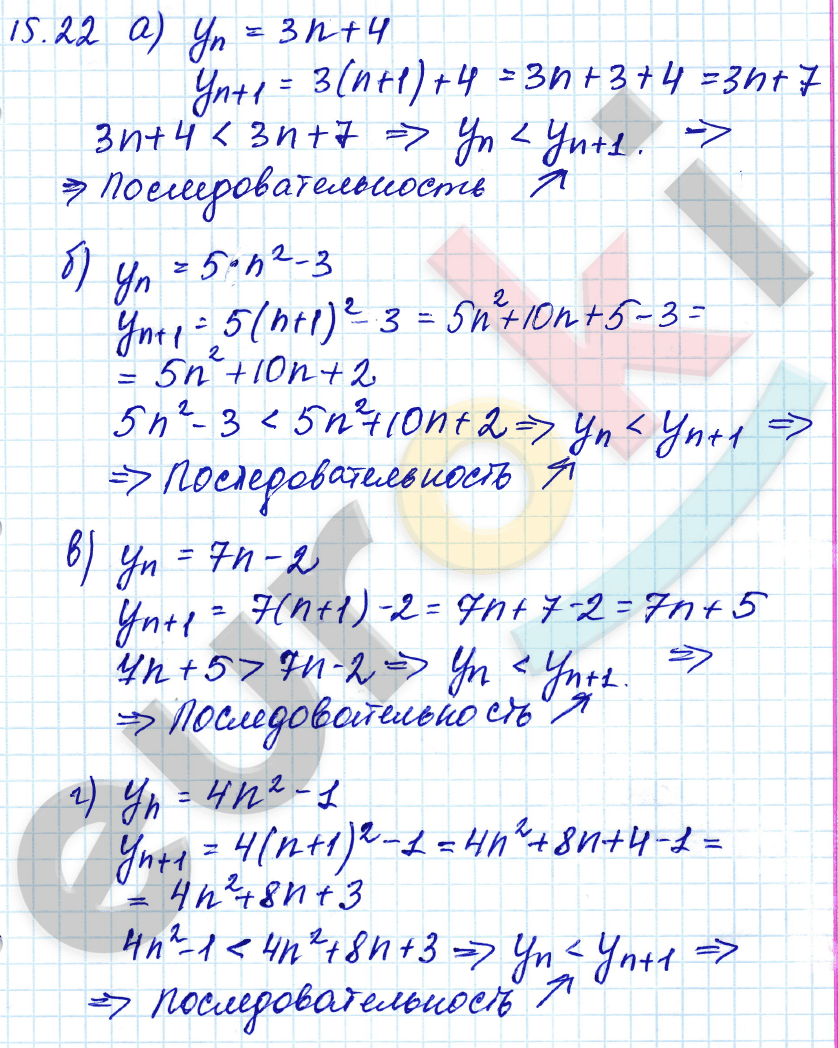 15.22 а) yₙ = 3n+4
yₙ₊₁ = 3(n+1)+4 = 3n+3+4 = 3n+7
3n+4 < 3n+7 => yₙ < yₙ₊₁. =>
=> Последовательность ↗
б) yₙ = 5·n²-3
yₙ₊₁ = 5(n+1)²-3 = 5n²+10n+5-3 =
= 5n²+10n+2
5n²-3 < 5n²+10n+2 => yₙ < yₙ₊₁ =>
=> Последовательность ↗
в) yₙ = 7n-2
yₙ₊₁ = 7(n+1)-2 = 7n+7-2 = 7n+5
7n+5 > 7n-2 => yₙ < yₙ₊₁. =>
=> Последовательность ↗
г) yₙ = 4n²-1
yₙ₊₁ = 4(n+1)²-1 = 4n²+8n+4-1 =
= 4n²+8n+3
4n²-1 < 4n²+8n+3 => yₙ < yₙ₊₁ =>
=> Последовательность ↗
euroki